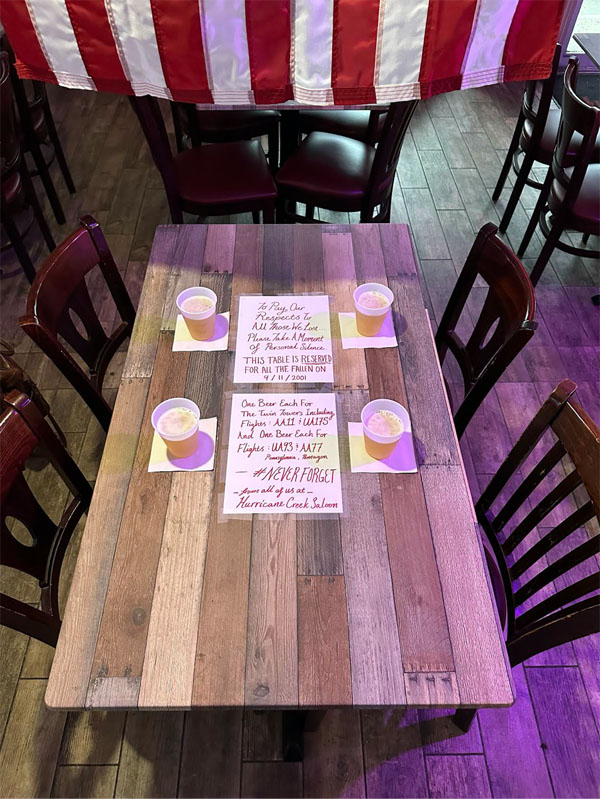 To Pay Our
Respects to
All Those We Lost...
Please Take A Moment
of Personal Silence
THIS TABLE IS RESERVED
FOR ALL THE FALLEN ON
9/11/2001
One Beer Each For
The Twin Towers Including
Flights: AA11 & UA175
And One Beer Each For
Flights: UA93 & AA77
Pennsylvania, Pentagon
— #NEVER FORGET
- from all of us at -
Hurricane Creek Saloon